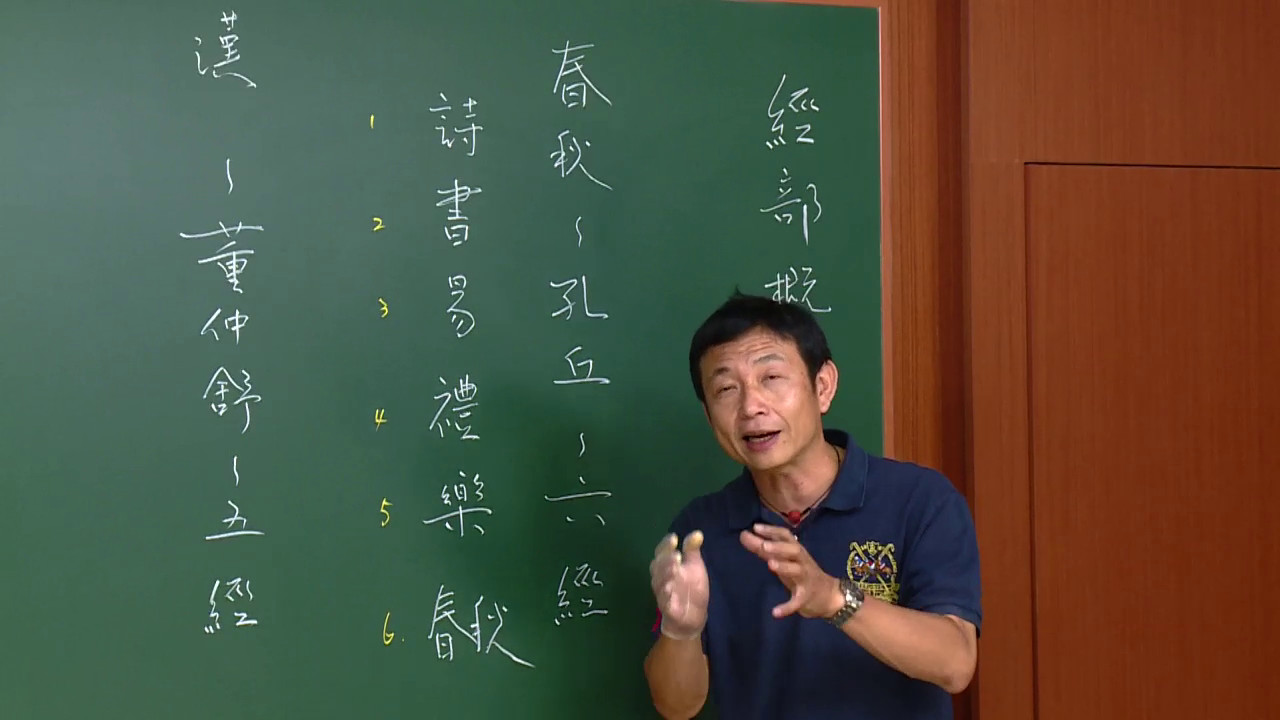 經部概
春秋~孔丘~六經
1 詩
2 書
3 易
4 禮
5 樂
6. 春秋
漢~董仲舒~五經